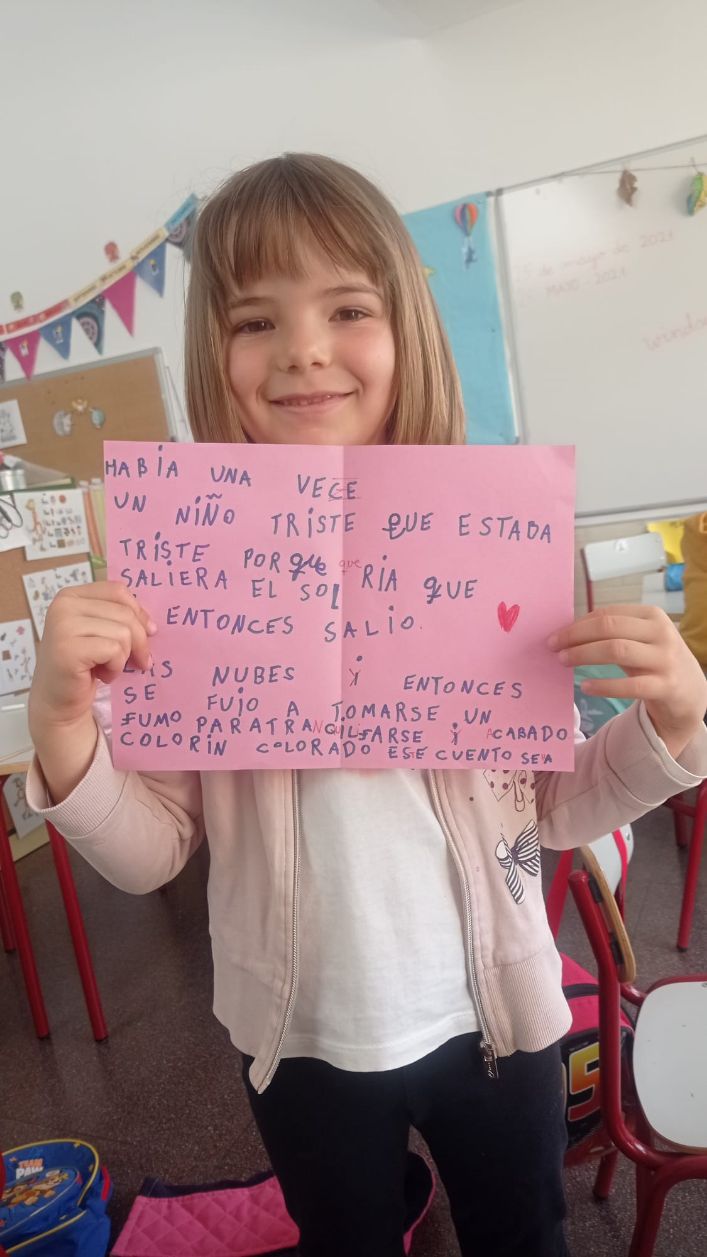 25 de mayo de 2021
MAYO - 2021
window
HABIA UNA VECE
UN NIÑO TRISTE QUE ESTADA
TRISTE PORQUE que RIA QUE
SALIERA EL SOL
ENTONCES SALIO.
LAS NUBES Y ENTONCES
SE FUJO A TOMARSE UN
FUMO PARATRANQUILISARSE Y ACABADO
COLORIN COLORADO ESE CUENTO SEA
5
TEAM
PAW